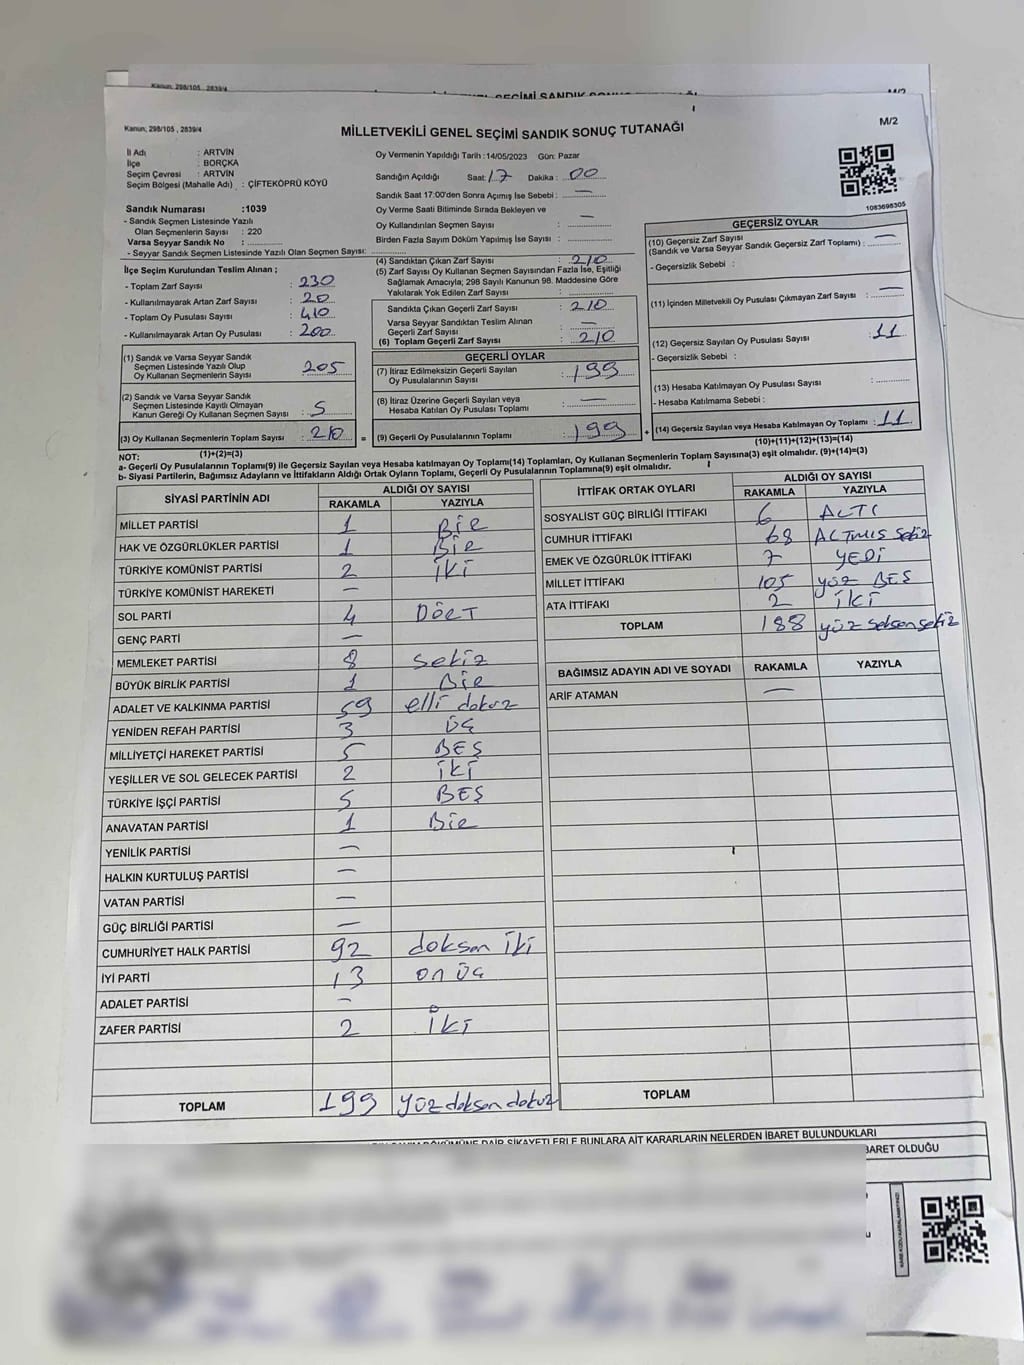 Kanun, 298/105 , 2839/4
M/2
Kanun, 298/105 , 2839/4
MİLLETVEKİLİ GENEL SEÇİMİ SANDIK SONUÇ TUTANAĞI
M/2
İl Adı : ARTVİN
İlçe : BORÇKA
Seçim Çevresi : ARTVİN
Seçim Bölgesi (Mahalle Adı) : ÇİFTEKÖPRÜ KÖYÜ
Sandık Numarası :1039
- Sandık Seçmen Listesinde Yazılı
Olan Seçmenlerin Sayısı : 220
Varsa Seyyar Sandık No :
- Seyyar Sandık Seçmen Listesinde Yazılı Olan Seçmen Sayısı:
Oy Vermenin Yapıldığı Tarih :14/05/2023 Gün: Pazar
Sandığın Açıldığı Saat: 17 Dakika : 00
Sandık Saat 17:00'den Sonra Açımış İse Sebebi : —
Oy Verme Saati Bitiminde Sırada Bekleyen ve
Oy Kullandırılan Seçmen Sayısı : —
Birden Fazla Sayım Döküm Yapılmış İse Sayısı :
1083698305
İlçe Seçim Kurulundan Teslim Alınan ;
- Toplam Zarf Sayısı : 230
- Kullanılmayarak Artan Zarf Sayısı : 20
- Toplam Oy Pusulası Sayısı : 410
- Kullanılmayarak Artan Oy Pusulası : 200
(1) Sandık ve Varsa Seyyar Sandık
Seçmen Listesinde Yazılı Olup
Oy Kullanan Seçmenlerin Sayısı : 205
(2) Sandık ve Varsa Seyyar Sandık
Seçmen Listesinde Kayıtlı Olmayan
Kanun Gereği Oy Kullanan Seçmen Sayısı : 5
(3) Oy Kullanan Seçmenlerin Toplam Sayısı : 210
(1)+(2)=(3)
(4) Sandıktan Çıkan Zarf Sayısı : 210
(5) Zarf Sayısı Oy Kullanan Seçmen Sayısından Fazla İse, Eşitliği
Sağlamak Amacıyla; 298 Sayılı Kanunun 98. Maddesine Göre
Yakılarak Yok Edilen Zarf Sayısı :
Sandıkta Çıkan Geçerli Zarf Sayısı : 210
Varsa Seyyar Sandıktan Teslim Alınan
Geçerli Zarf Sayısı : —
(6) Toplam Geçerli Zarf Sayısı : 210
GEÇERLİ OYLAR
(7) İtiraz Edilmeksizin Geçerli Sayılan
Oy Pusulalarının Sayısı : 199
(8) İtiraz Üzerine Geçerli Sayılan veya
Hesaba Katılan Oy Pusulası Toplamı : —
= (9) Geçerli Oy Pusulalarının Toplamı : 199 +
GEÇERSİZ OYLAR
(10) Geçersiz Zarf Sayısı
(Sandık ve Varsa Seyyar Sandık Geçersiz Zarf Toplamı) : —
- Geçersizlik Sebebi :
(11) İçinden Milletvekili Oy Pusulası Çıkmayan Zarf Sayısı : —
(12) Geçersiz Sayılan Oy Pusulası Sayısı : 11
- Geçersizlik Sebebi :
(13) Hesaba Katılmayan Oy Pusulası Sayısı :
- Hesaba Katılmama Sebebi :
(14) Geçersiz Sayılan veya Hesaba Katılmayan Oy Toplamı : 11
(10)+(11)+(12)+(13)=(14)
NOT:
a- Geçerli Oy Pusulalarının Toplamı(9) ile Geçersiz Sayılan veya Hesaba katılmayan Oy Toplamı(14) Toplamları, Oy Kullanan Seçmenlerin Toplam Sayısına(3) eşit olmalıdır. (9)+(14)=(3)
b- Siyasi Partilerin, Bağımsız Adayların ve İttifakların Aldığı Ortak Oyların Toplamı, Geçerli Oy Pusulalarının Toplamına(9) eşit olmalıdır.
SİYASİ PARTİNİN ADI ALDIĞI OY SAYISI
RAKAMLA YAZIYLA
MİLLET PARTİSİ 1 Bir
HAK VE ÖZGÜRLÜKLER PARTİSİ 1 Bir
TÜRKİYE KOMÜNİST PARTİSİ 2 İKİ
TÜRKİYE KOMÜNİST HAREKETİ —
SOL PARTİ 4 DÖrT
GENÇ PARTİ —
MEMLEKET PARTİSİ 8 sekiz
BÜYÜK BİRLİK PARTİSİ 1 Bir
ADALET VE KALKINMA PARTİSİ 59 elli dokuz
YENİDEN REFAH PARTİSİ 3 üç
MİLLİYETÇİ HAREKET PARTİSİ 5 BEŞ
YEŞİLLER VE SOL GELECEK PARTİSİ 2 İKİ
TÜRKİYE İŞÇİ PARTİSİ 5 BEŞ
ANAVATAN PARTİSİ 1 Bir
YENİLİK PARTİSİ —
HALKIN KURTULUŞ PARTİSİ —
VATAN PARTİSİ —
GÜÇ BİRLİĞİ PARTİSİ —
CUMHURİYET HALK PARTİSİ 92 doksan İki
İYİ PARTİ 13 on üç
ADALET PARTİSİ —
ZAFER PARTİSİ 2 İKİ
TOPLAM 199 yüz doksan dokuz
İTTİFAK ORTAK OYLARI ALDIĞI OY SAYISI
RAKAMLA YAZIYLA
SOSYALİST GÜÇ BİRLİĞİ İTTİFAKI 6 ALTI
CUMHUR İTTİFAKI 68 ALTMIŞ Sekiz
EMEK VE ÖZGÜRLÜK İTTİFAKI 7 YEDİ
MİLLET İTTİFAKI 105 yüz BEŞ
ATA İTTİFAKI 2 İKİ
TOPLAM 188 yüz seksen sekiz
BAĞIMSIZ ADAYIN ADI VE SOYADI RAKAMLA YAZIYLA
ARİF ATAMAN —
TOPLAM
DÖKÜMÜNE DAİR ŞİKAYETLERLE BUNLARA AİT KARARLARIN NELERDEN İBARET BULUNDUKLARI
BARET OLDUĞU